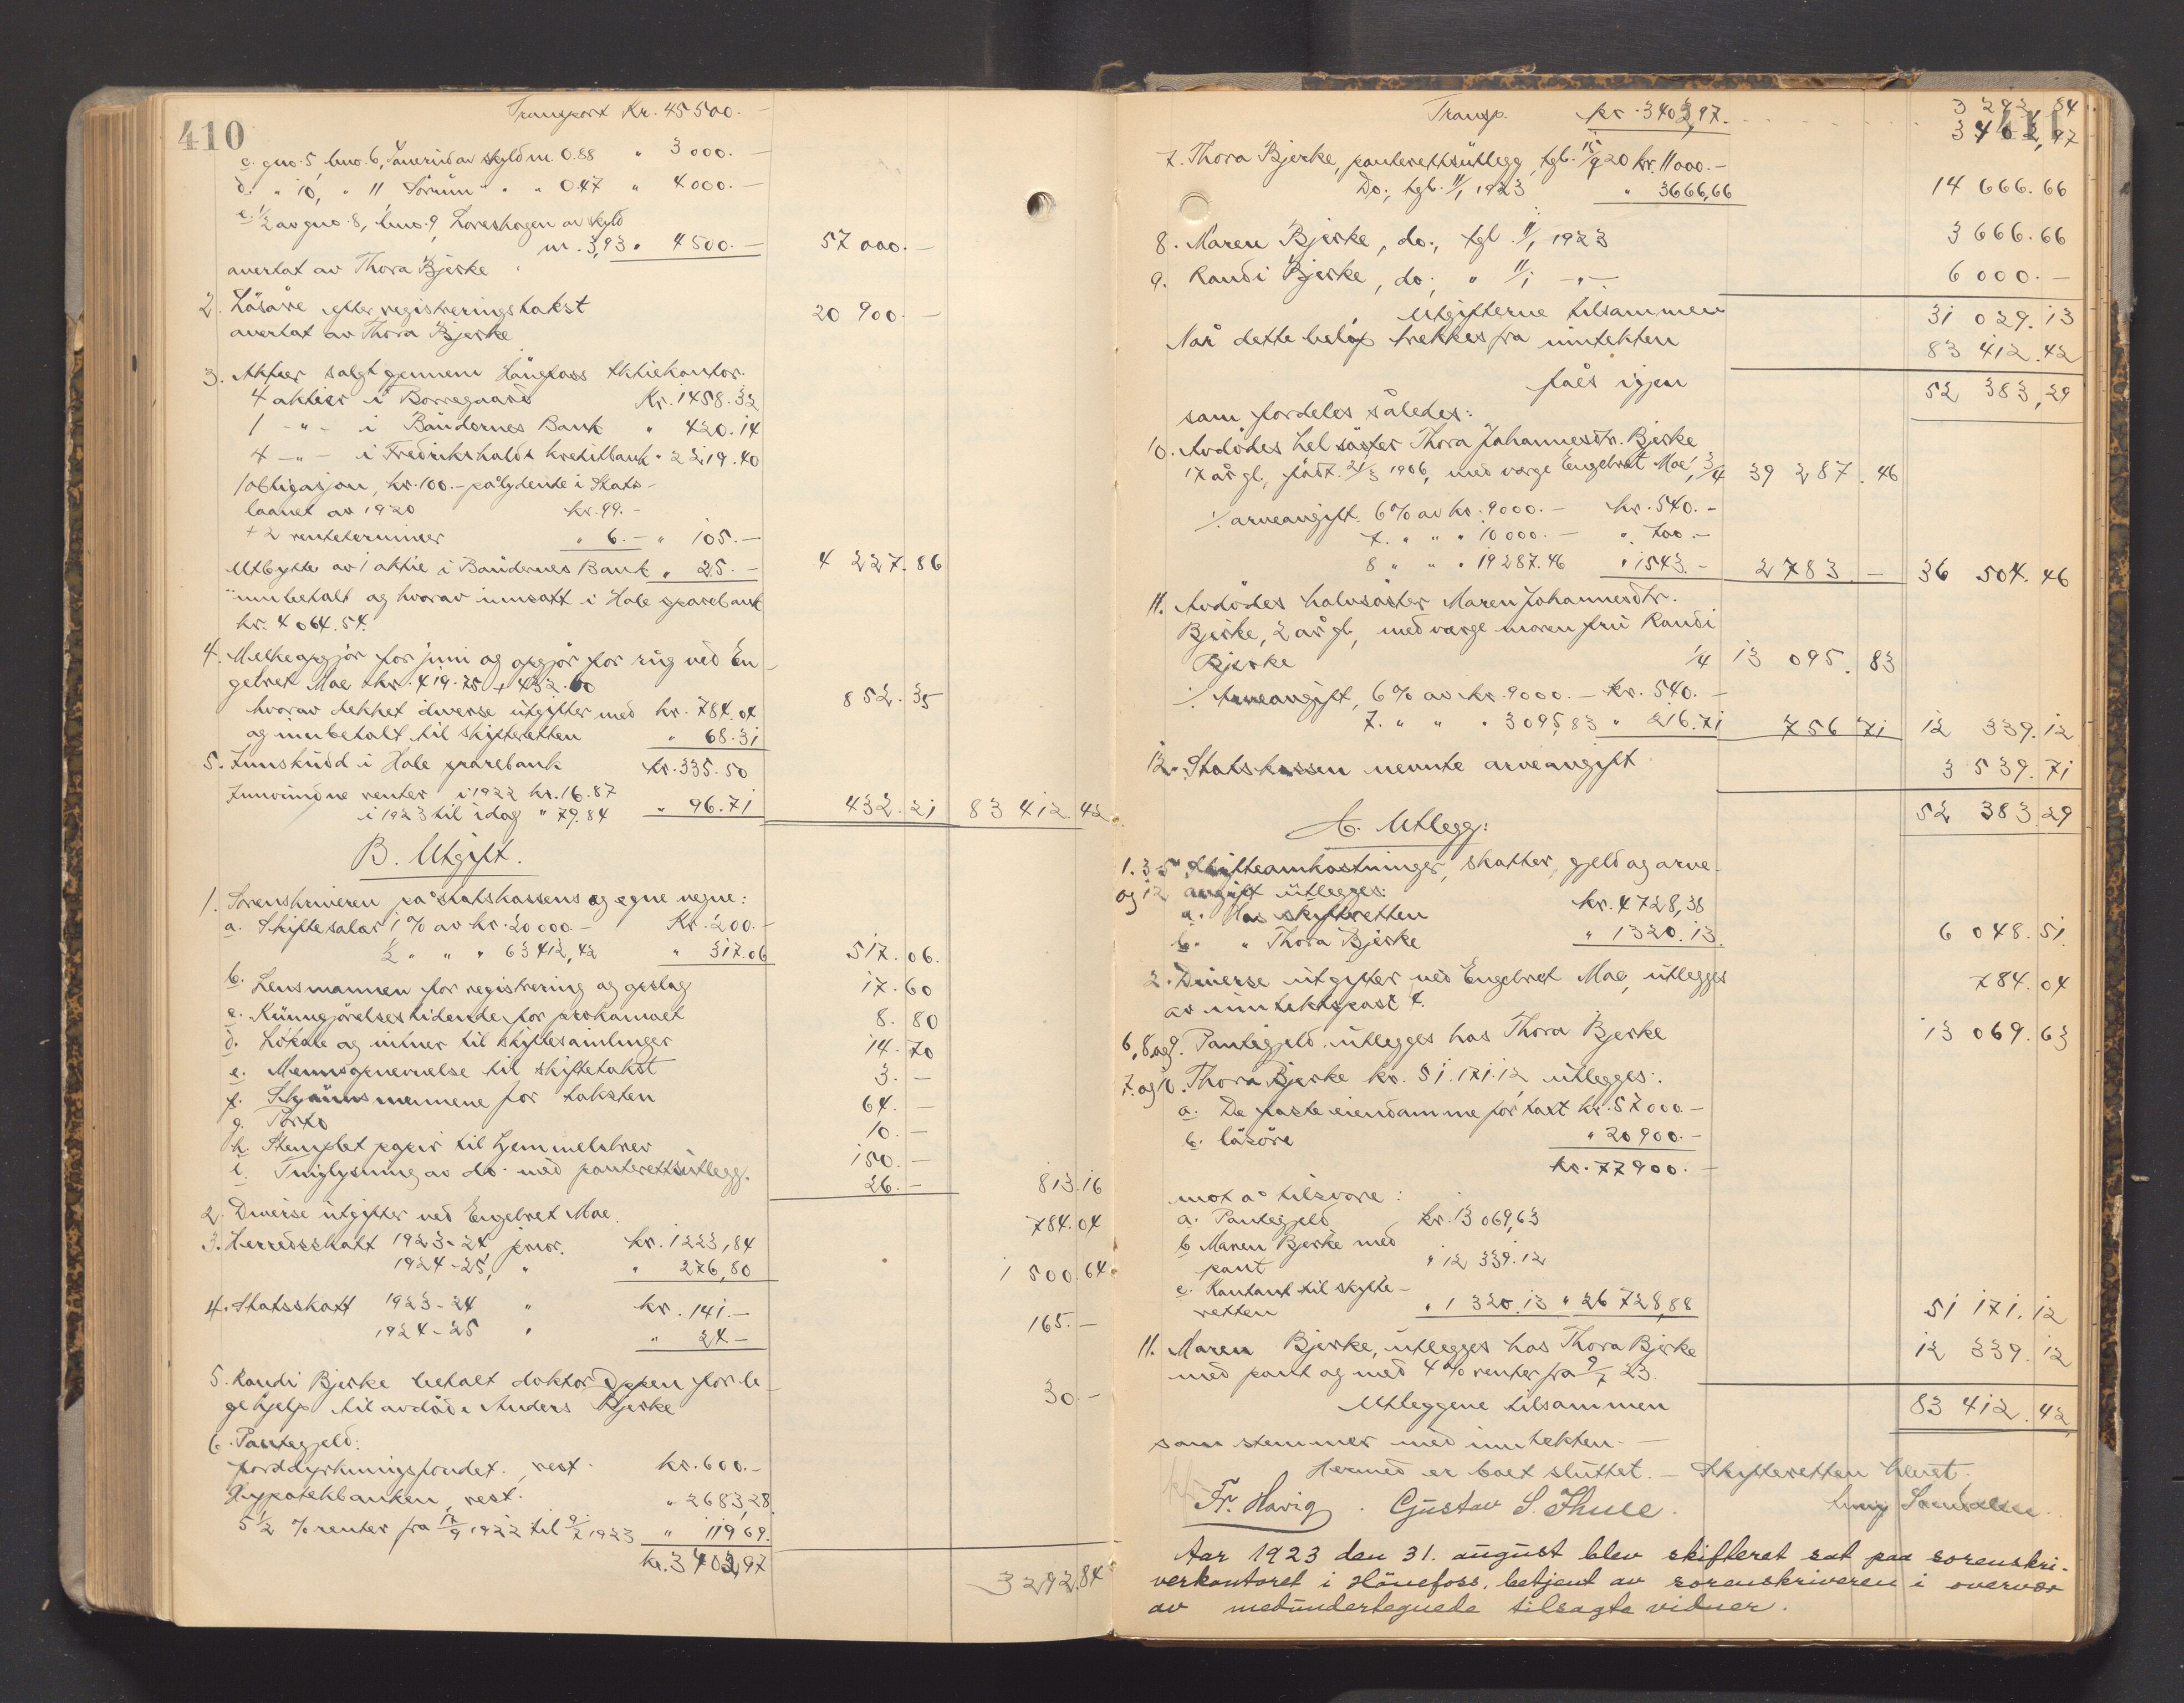 410
Transport Kr. 45 500.-
c. gno. 5, bno. 6, av skyld m 0.88 " 3 000.-
d. " 10, " 11 Sörum " " 0.47 " 4 000.-
e. 1/2 av gno. 8, bno. 9, av skyld
m. 3,93 " 4 500.- 57 000.-
overtat av Thora Bjerke
2. Lösöre efter registreringstakst 20 900.-
overtat av Thora Bjerke
3. Aktier solgt gjennem Hönefoss Aktiekontor.
4 aktier i Borregaard Kr. 1458.32
1 -"- i Böndernes Bank " 420.14
4 -"- i Fredrikshalds kreditbank " 2219.40
1 obligasjon, kr. 100.- pålydende i Stats-
laanet av 1920 kr. 99.-
+ 2 renteterminer " 6.- " 105.-
Utbytte av 1 aktie i Böndernes Bank " 25.- 4 227.86
innbetalt og hvorav innsatt i Hole sparebank
kr. 4064.54.
4. Melkeopgjör for juni og opgjör for rug ved En-
gebret Moe kr. 419.75 + 432.60 852.35
hvorav dekket diverse utgifter med kr. 784.04
og innbetalt til skifteretten " 68.31
5. Innskudd i Hole sparebank kr. 335.50
Innvundne renter i 1922 kr. 16.87
i 1923 til idag " 79.84 " 96.71 432.21 83 412.42
B. Utgift.
1. Sorenskriveren på statskassens og egne vegne:
a. Skiftesalar 1 % av kr. 20 000.- Kr. 200.-
1/2 " " " 63 412,42 " 317.06 517.06.
b. Lensmannen for registrering og opslag 17.60
c. Kunngjörelsestidende for proklamaet 8.80
d. Lokale og vitner til skiftesamlinger 14.70
e. Mennsopnevnelse til skiftetakst 3.-
f. Skjönnsmennene for taksten 64.-
g. Porto 10.-
h. Stemplet papir til hjemmelsbrev 150.-
i. Tinglysning av do. med panterettsutlegg. 26.- 813.16
2. Diverse utgifter ved Engebret Moe. 784.04
3. Herredsskatt 1923-24 prior. kr. 1223,84
1924-25, " " 276,80 1 500.64
4. Statsskatt 1923-24 " kr. 141.-
1924-25 " " 24.- 165.-
5. Randi Bjerke betalt doktor for le-
gehjelp til avdöde Anders Bjerke 30.-
6. Pantegjeld:
Jorddyrkningsfondet. rest. kr. 600.-
Hypotekbanken, rest. " 2683,28
5 1/2 % renter fra 12/9 1922 til 9/7 1923 " 119,69.
kr. 3402,97
3292.84
411
Transp. kr. 3402,97. 3 292,84
3 402,97
7. Thora Bjerke, panterettsutlegg, tgl. 15/9 20 kr. 11000.-
Do., tgl. 11/1 1923 " 3666,66 14 666.66
8. Maren Bjerke, do., tgl 11/1 1923 3 666.66
9. Randi Bjerke, do., " 11/1 -"- 6 000.-
Utgifterne tilsammen 31 029.13
Når dette belöp trekkes fra inntekten 83 412.42
fåes igjen 52 383,29
som fordeles således:
10. Avdödes helsöster Thora Johannesdtr. Bjerke
17 år gl., född 21/3 1906, med verge Engebret Moe, 3/4 39 287.46
./. arveavgift 6 % av kr. 9000.- kr. 540.-
7. " " " 10000.- " 700.-
8 " " " 19287.46 " 1543.- 2783 - 36 504.46
11. Avdödes halvsöster Maren Johannesdtr.
Bjerke, 2 år gl., med verge moren fru Randi
Bjerke 1/4 13 095.83
./. Arveavgift, 6 % av kr. 9000.- Kr. 540.-
7. " " " 3095,83 " 216.71 756 71 12 339.12
12. Statskassen nevnte arveavgift 3 539.71
52 383.29
C. Utlegg:
1. 3-5 Skifteomkostninger, skatter, gjeld og arve-
og 12 avgift utlegges:
a. Hos skifteretten kr. 4728,38
b. " Thora Bjerke " 1320.13. 6 048.51.
2. Diverse utgifter ved Engebret Moe, utlegges
av inntektspost 4. 784.04
6, 8, og 9. Pantegjeld utlegges hos Thora Bjerke 13 069.63
7. og 10. Thora Bjerke kr. 51.171.12 utlegges:
a. De faste eiendomme for taxt kr. 57000.-
b. lösöre " 20900.-
kr. 77900.-
mot å tilsvare:
a. Pantegjeld kr. 13 069,63
b. Maren Bjerke med
pant " 12 339.12
c. Kontant til skifte-
retten " 1 320.13 " 26 728,88 51 171.12
11. Maren Bjerke, utlegges hos Thora Bjerke
med pant og med 4 % renter fra 9/7 23. 12 339.12
Utleggene tilsammen 83 412.42
som stemmer med inntekten.-
Hermed er boet sluttet. - Skifteretten hevet.
Fr. Hovig. Gustav S. Thue.
Aar 1923 den 31. august blev skifteret sat paa sorenskri-
verkontoret i Hönefoss, betjent av sorenskriveren i overvær
av medundertegnede tilsagte vidner.